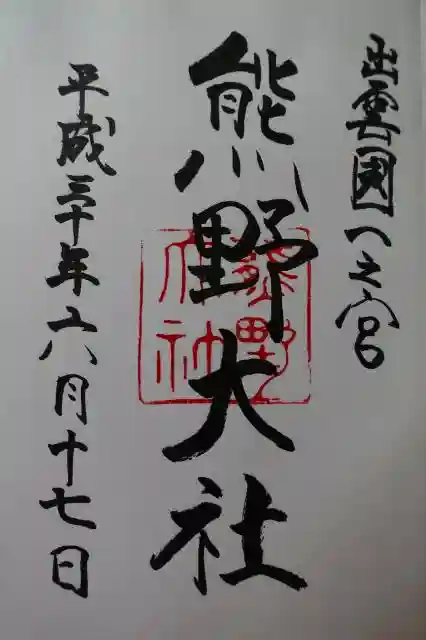 出雲國一之宮
熊野大社
熊野
大社
平成三十年六月十七日